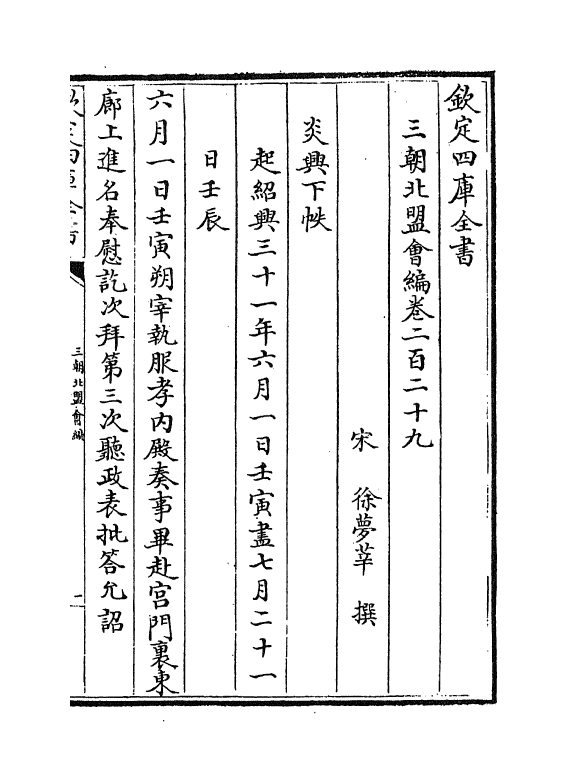 欽定四庫全書
三朝北盟會編卷二百二十九
宋　徐夢莘　撰
炎興下帙
起紹興三十一年六月一日壬寅盡七月二十一
日壬辰
六月一日壬寅朔宰執服孝內殿奏事畢赴宫門裏東
廊上進名奉慰訖次拜第三次聽政表批答允詔
三朝北盟會編